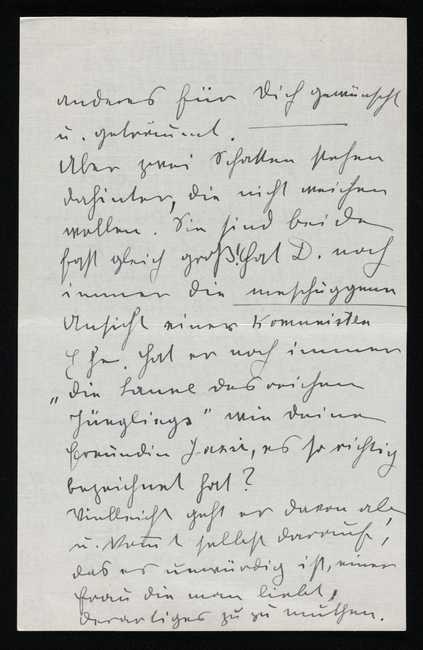 anderes für Dich gewünscht
u. geträumt.
Aber zwei Schatten stehen
dahinter, die nicht weichen
wollen. Sie sind beide
fast gleich groß! hat D. noch
immer die meschuggene
Ansicht einer
Ehe, hat er noch immer
„die Laune des reichen
Jünglings" wie deine
Freundin es so richtig
bezeichnet hat?
Vielleicht geht er davon ab,
u. kommt selbst darauf,
das es unwürdig ist, einer
Frau die man liebt,
derartiges zu zu muthen.